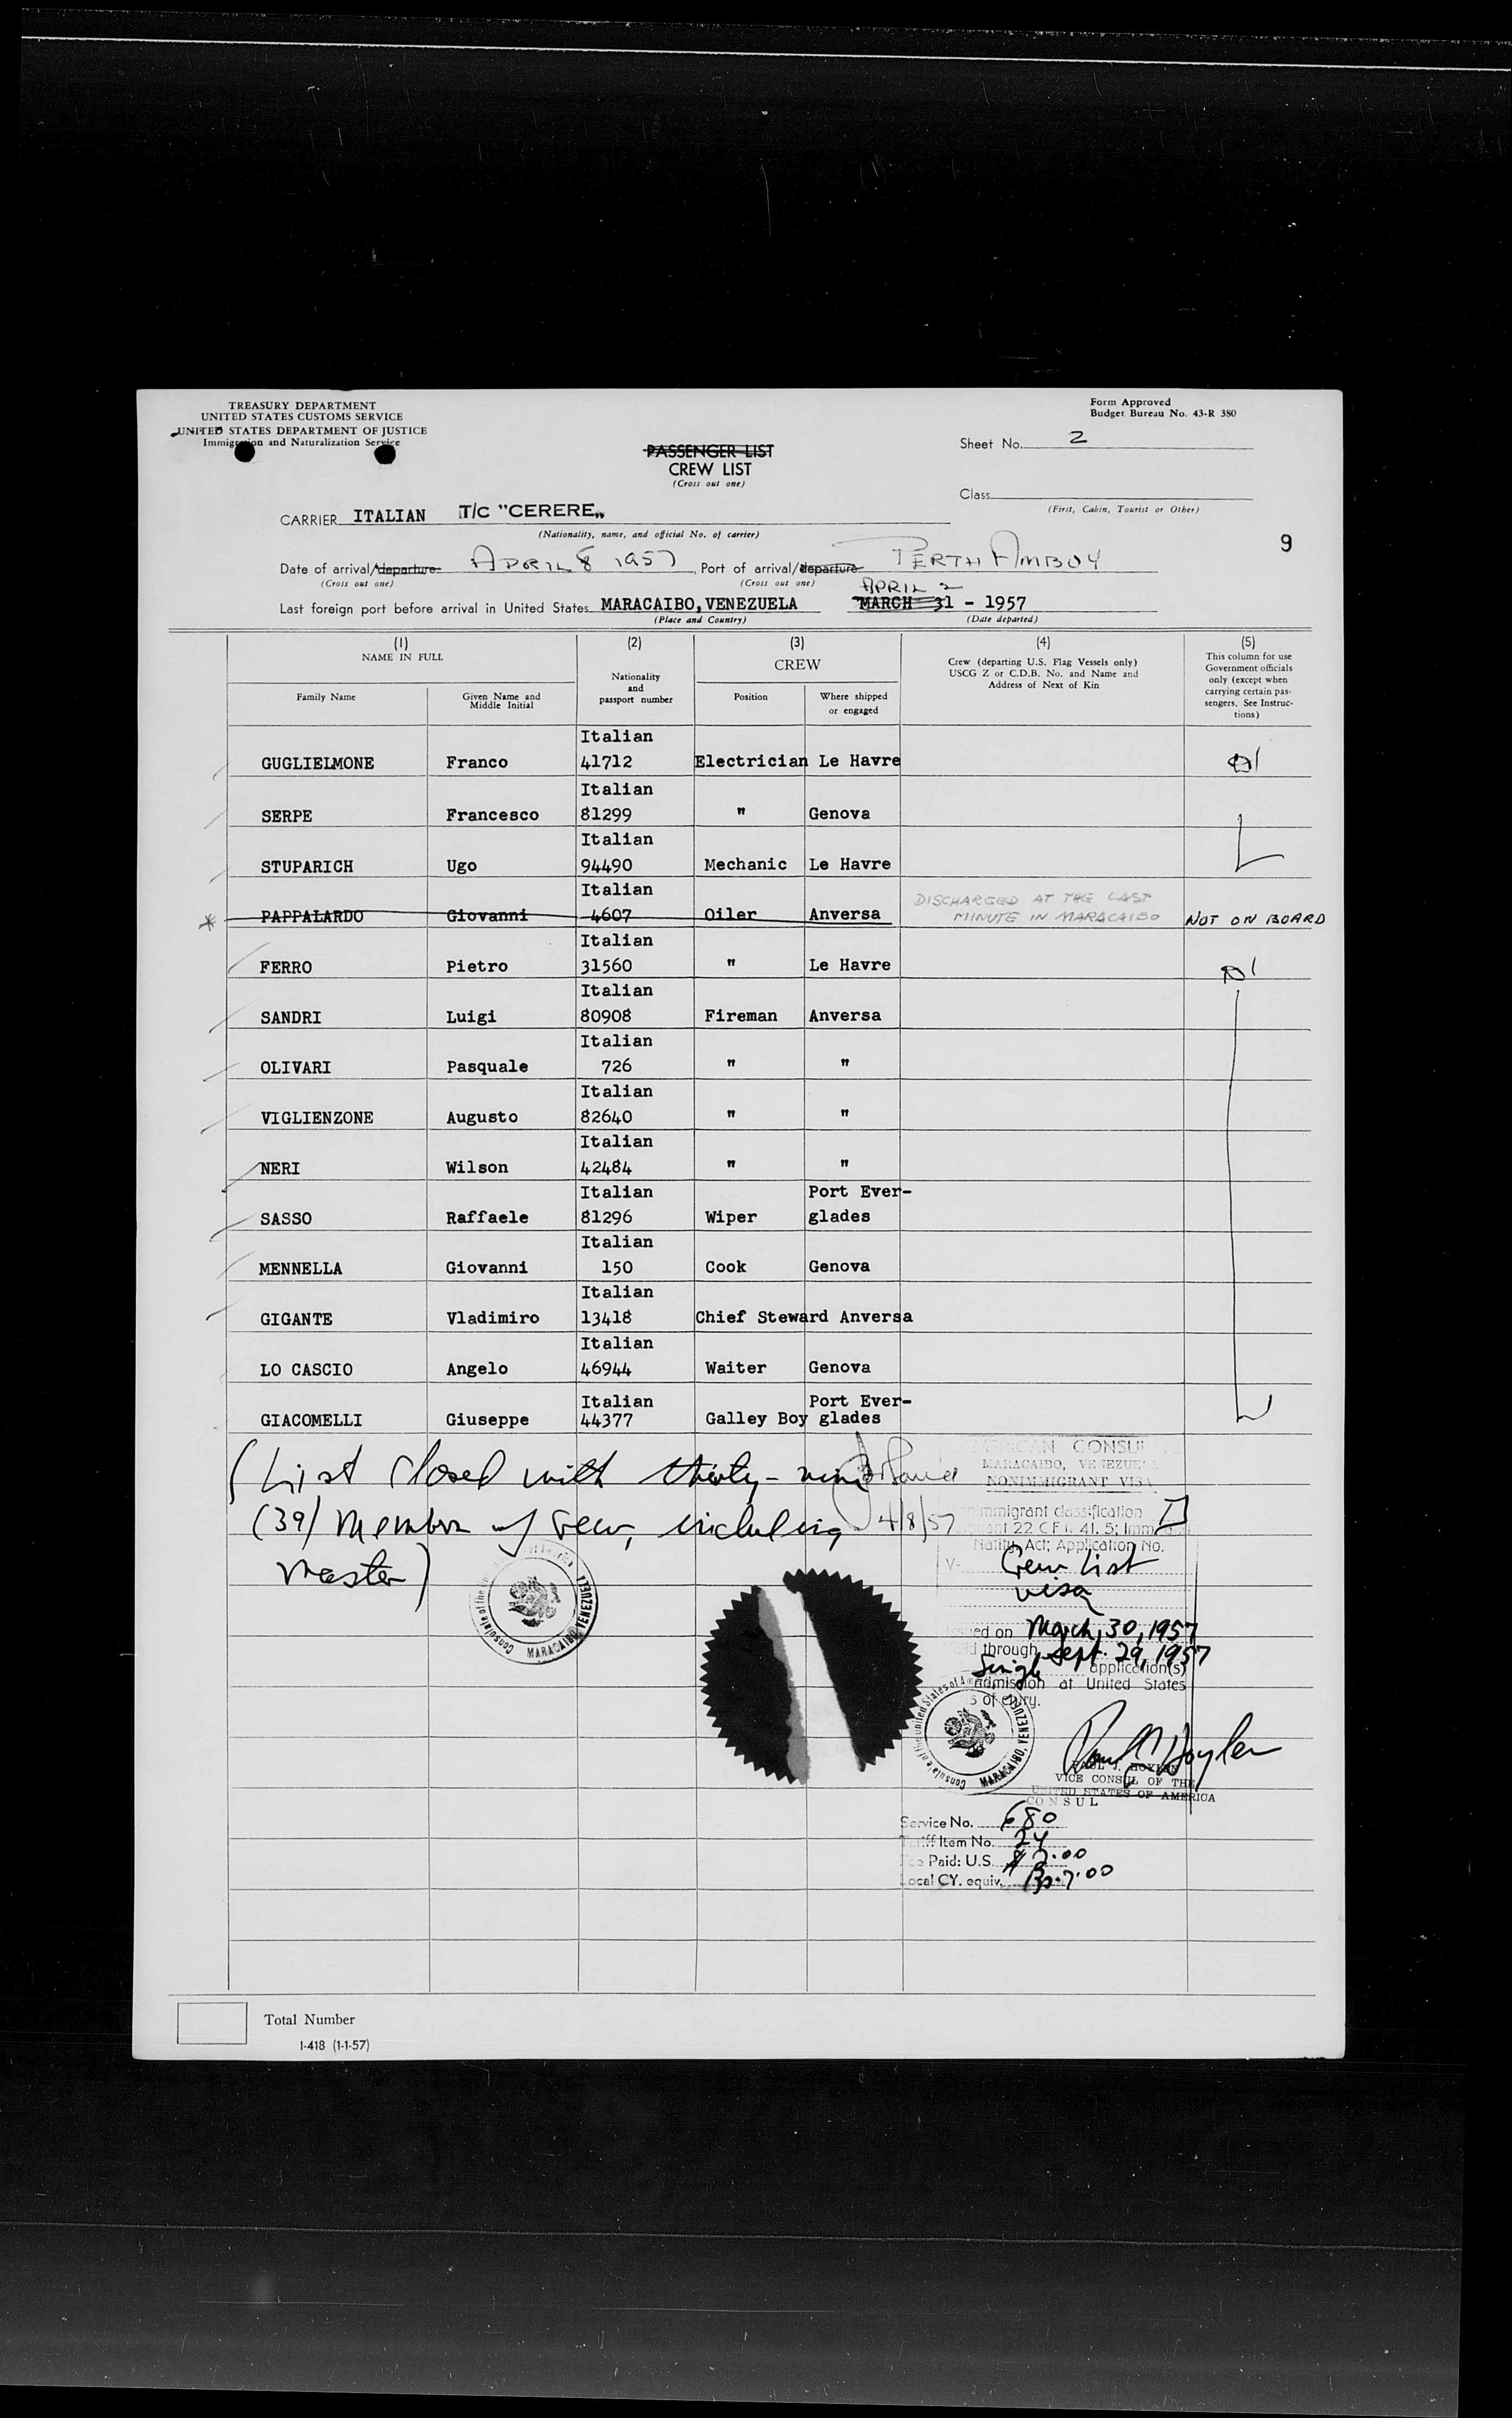 TREASURY DEPARTMENT
UNITED STATES CUSTOMS SERVICE
UNITED STATES DEPARTMENT OF JUSTICE
Immigration and Naturalization Service
Form Approved
Budget Bureau No. 43-R 380
PASSENGER LIST
CREW LIST
(Cross out one)
Sheet No. 2
Class
(First, Cabin, Tourist or Other)
CARRIER ITALIAN T/C "CERERE„
(Nationality, name, and official No. of carrier)
9
Date of arrival/departure APRIL 8 1957, Port of arrival/departure PERTH AMBOY
(Cross out one) (Cross out one)
APRIL 2
Last foreign port before arrival in United States MARACAIBO, VENEZUELA MARCH 31 - 1957
(Place and Country) (Date departed)
(1) (2) (3) (4) (5)
NAME IN FULL
Family Name
Given Name and
Middle Initial
Nationality
and
passport number
CREW
Position
Where shipped
or engaged
Crew (departing U.S. Flag Vessels only)
USCG Z or C.D.B. No. and Name and
Address of Next of Kin
This column for use
Government officials
only (except when
carrying certain pas-
sengers. See Instruc-
tions)
Italian
GUGLIELMONE Franco 41712 Electrician Le Havre
Italian
SERPE Francesco 81299 " Genova
Italian
STUPARICH Ugo 94490 Mechanic Le Havre
Italian
DISCHARGED AT THE LAST
PAPPALARDO Giovanni 4607 Oiler Anversa MINUTE IN MARACAIBO NOT ON BOARD
Italian
FERRO Pietro 31560 " Le Havre
Italian
SANDRI Luigi 80908 Fireman Anversa
Italian
OLIVARI Pasquale 726 " "
Italian
VIGLIENZONE Augusto 82640 " "
Italian
NERI Wilson 42484 " "
Italian Port Ever-
SASSO Raffaele 81296 Wiper glades
Italian
MENNELLA Giovanni 150 Cook Genova
Italian
GIGANTE Vladimiro 13418 Chief Steward Anversa
Italian
LO CASCIO Angelo 46944 Waiter Genova
Italian Port Ever-
GIACOMELLI Giuseppe 44377 Galley Boy glades
(List closed with thirty-nine
(39) Members of crew, including
Master)
4/8/57
AMERICAN CONSUL
MARACAIBO, VENEZUELA
NONIMMIGRANT VISA
immigrant classification D
22 C F R 41. 5; Imm
Natity, Act; Application No.
V- Crew List
visa
Issued on March 30, 1957
through Sept. 29, 1957
Single application(s)
admission at United States
s of entry.
Consulate of the United States of America
MARACAIBO, VENEZUELA
Consulate of the United States of America
MARACAIBO, VENEZUELA
PAUL J. HOYLEN
VICE CONSUL OF THE
UNITED STATES OF AMERICA
CONSUL
Service No. 680
Tariff Item No. 24
Fee Paid: U.S. $ 2.00
Local CY. equiv. Bs. 7.00
Total Number
I-418 (1-1-57)